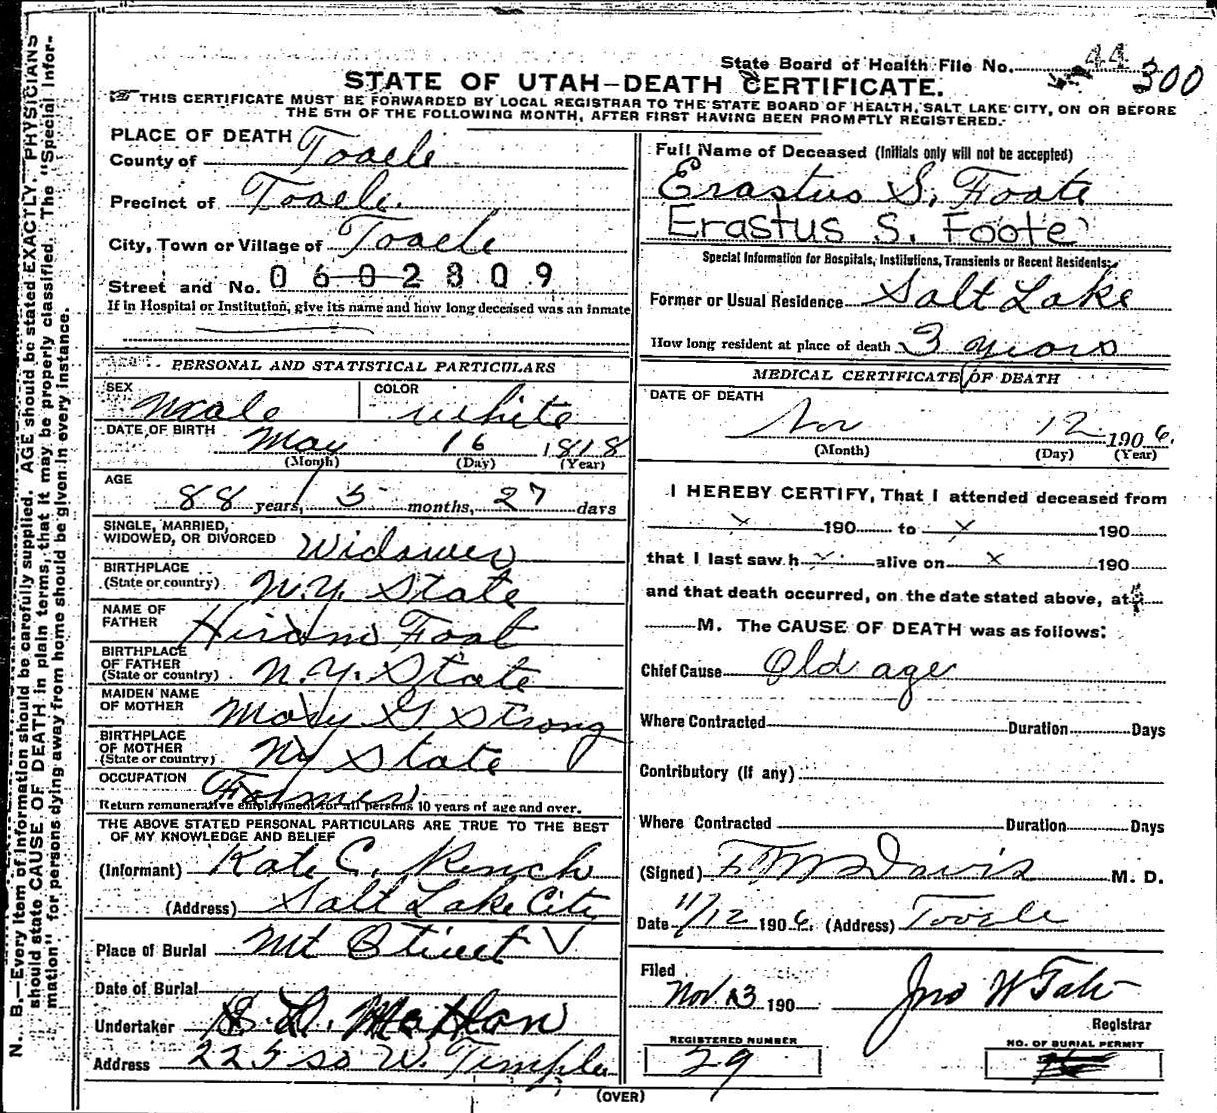 State Board of Health File No. 44 300
STATE OF UTAH—DEATH CERTIFICATE.
THIS CERTIFICATE MUST BE FORWARDED BY LOCAL REGISTRAR TO THE STATE BOARD OF HEALTH, SALT LAKE CITY, ON OR BEFORE
THE 5TH OF THE FOLLOWING MONTH, AFTER FIRST HAVING BEEN PROMPTLY REGISTERED.
PLACE OF DEATH
County of Tooele
Precinct of Tooele
City, Town or Village of Tooele
Street and No. 0602809
If in Hospital or Institution, give its name and how long deceased was an inmate
PERSONAL AND STATISTICAL PARTICULARS
SEX Male COLOR White
DATE OF BIRTH May 16 1818
(Month) (Day) (Year)
AGE
88 years, 5 months, 27 days
SINGLE, MARRIED,
WIDOWED, OR DIVORCED Widower
BIRTHPLACE
(State or country) N.Y. State
NAME OF
FATHER Hiram Foot
BIRTHPLACE
OF FATHER
(State or country) N.Y. State
MAIDEN NAME
OF MOTHER Mary G Strong
BIRTHPLACE
OF MOTHER
(State or country) NY State
OCCUPATION Farmer
Return remunerative employment for all persons 10 years of age and over.
THE ABOVE STATED PERSONAL PARTICULARS ARE TRUE TO THE BEST
OF MY KNOWLEDGE AND BELIEF
(Informant) Kate C.
(Address) Salt Lake City
Place of Burial Mt Olivet
Date of Burial
Undertaker
Address 225 So W. Temple
Full Name of Deceased (Initials only will not be accepted)
Erastus S. Foote
Erastus S. Foote
Special Information for Hospitals, Institutions, Transients or Recent Residents:
Former or Usual Residence Salt Lake
How long resident at place of death 3 years
MEDICAL CERTIFICATE OF DEATH
DATE OF DEATH
Nov 12 1906.
(Month) (Day) (Year)
I HEREBY CERTIFY, That I attended deceased from
x 190 to x 190
that I last saw h x alive on x 190
and that death occurred, on the date stated above, at
M. The CAUSE OF DEATH was as follows:
Chief Cause Old age
Where Contracted Duration Days
Contributory (If any)
Where Contracted Duration Days
(Signed) F M Davis M. D.
Date 11/12 1906. (Address) Tooele
Filed
Nov 13 190 Jno W Tate
Registrar
REGISTERED NUMBER
29
NO. OF BURIAL PERMIT
(OVER)
N. B.—Every item of information should be carefully supplied. AGE should be stated EXACTLY. PHYSICIANS
should state CAUSE OF DEATH in plain terms, that it may be properly classified. The "Special Infor-
mation" for persons dying away from home should be given in every instance.